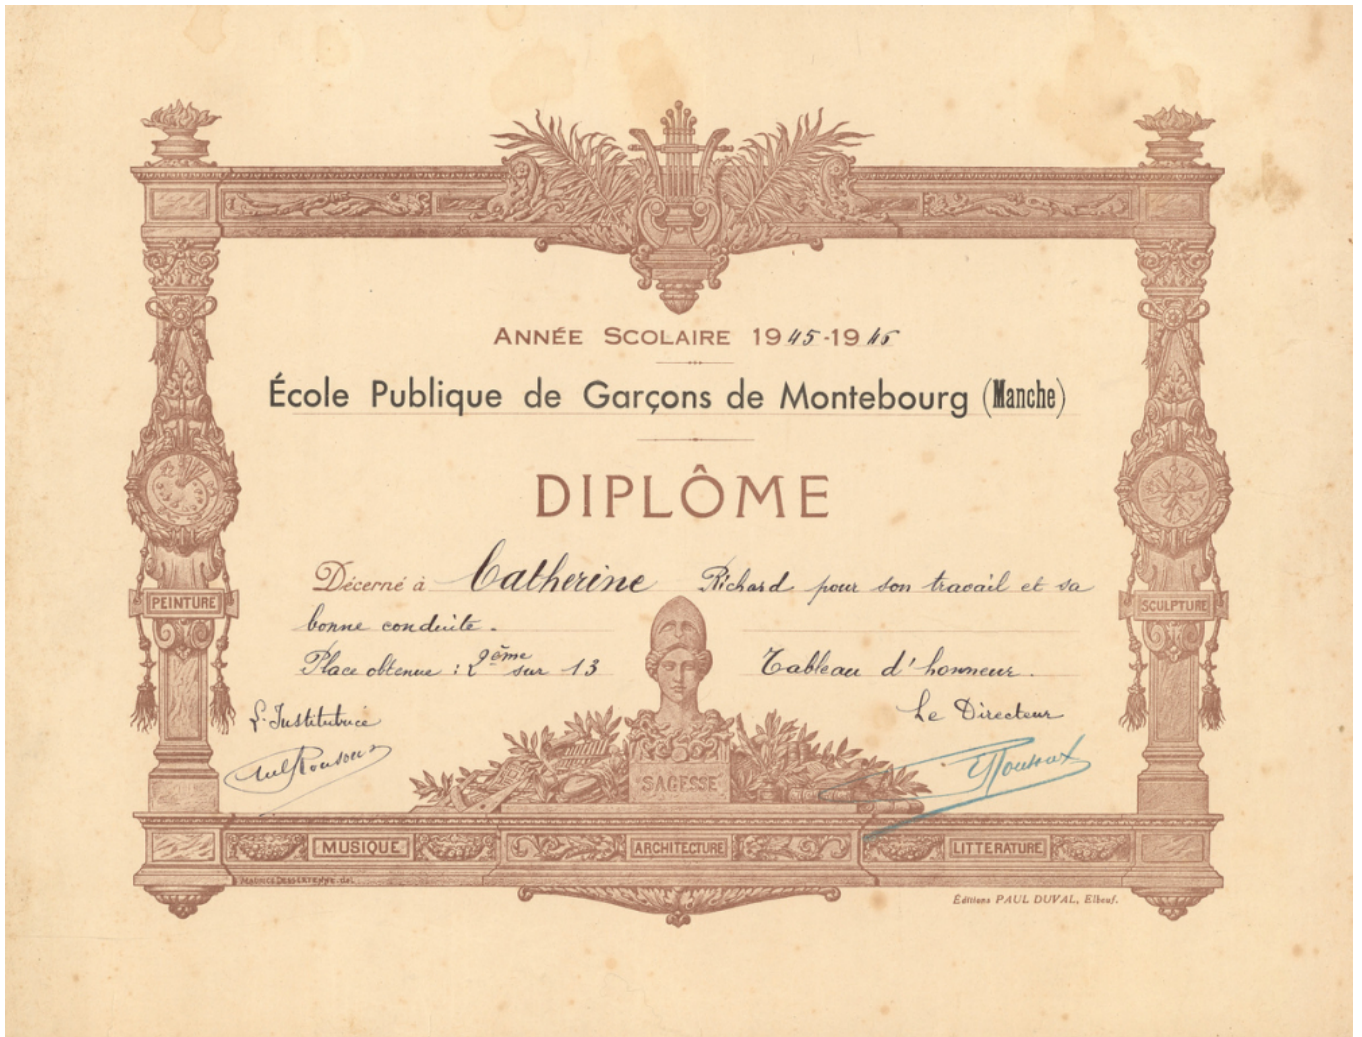 ANNÉE SCOLAIRE 1945-1946
École Publique de Garçons de Montebourg (Manche)
DIPLÔME
Décerné à Catherine Richard pour son travail et sa
bonne conduite.
Place obtenue : 2ème sur 13 Tableau d'honneur.
L'Institutrice Le Directeur
PEINTURE
SCULPTURE
SAGESSE
MUSIQUE ARCHITECTURE LITTERATURE
MAURICE DESSERTENNE. del.
Éditions PAUL DUVAL, Elbeuf.